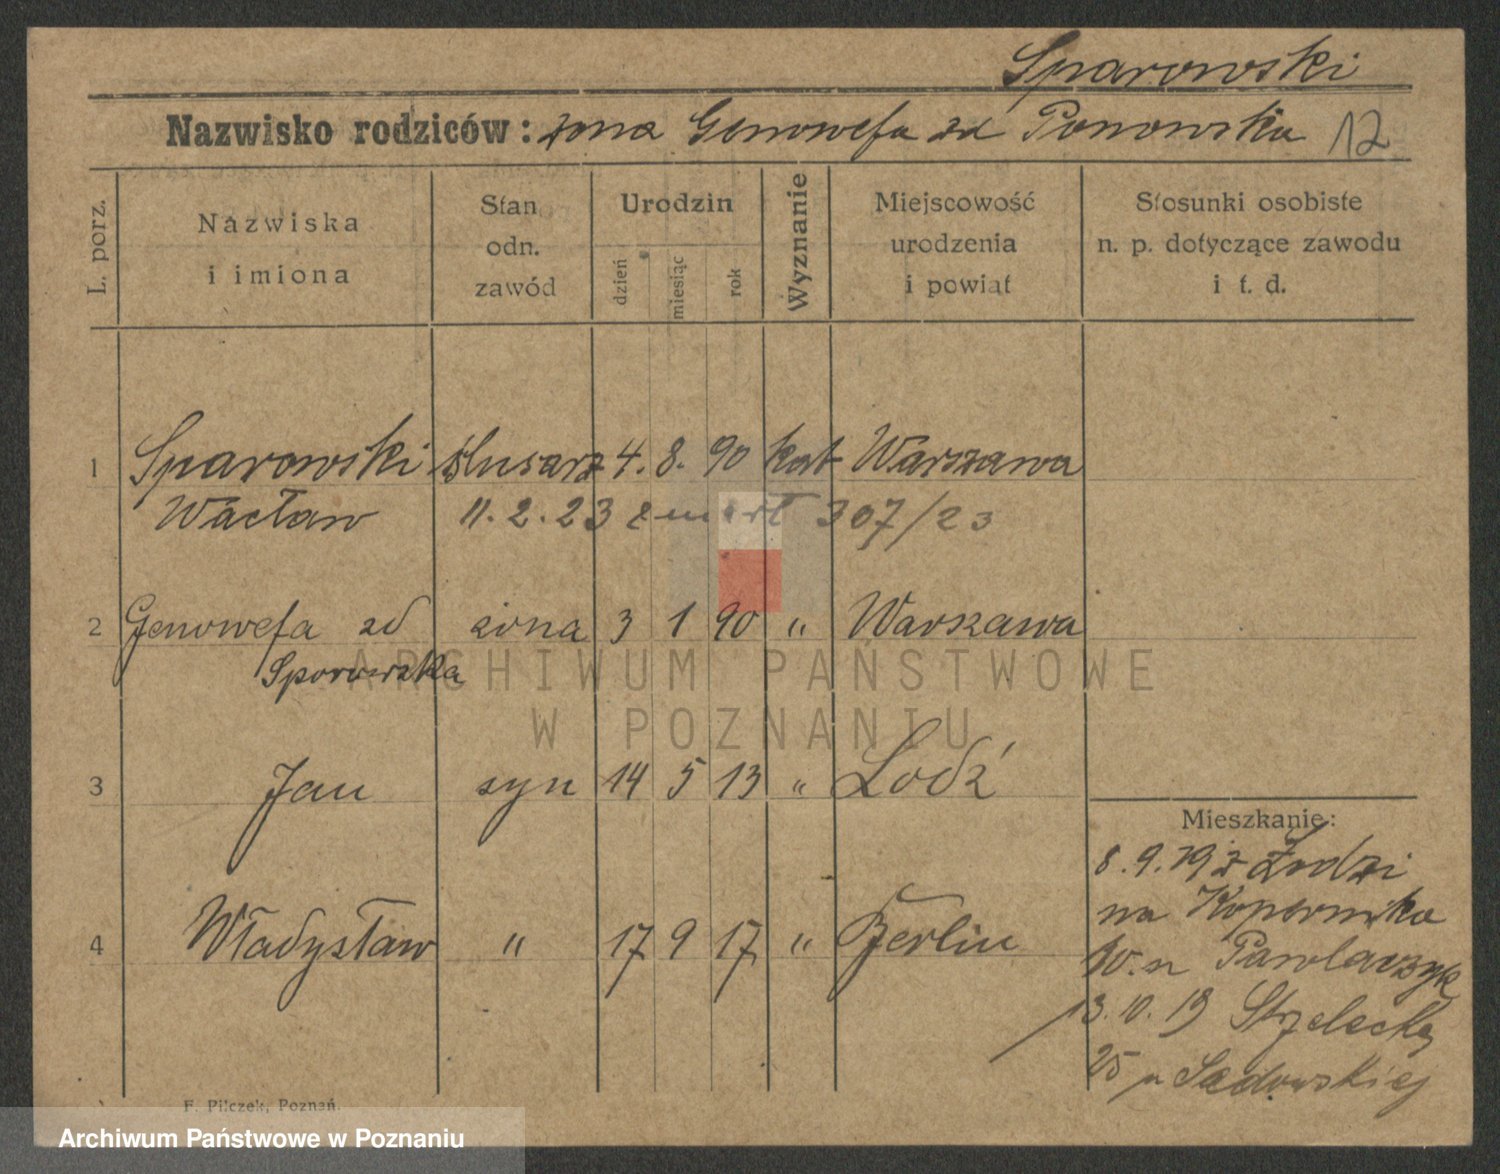 Sparowski
Nazwisko rodziców: żona Genowefa zd Ponowska 12
L. porz.
Nazwiska i imiona
Stan odn. zawód
Urodzin
dzień
miesiąc
rok
Wyznanie
Miejscowość urodzenia i powiat
Stosunki osobiste n. p. dotyczące zawodu i t. d.
1 Sparowski ślusarz 4. 8. 90 kat Warszawa
Wacław 11.2.23 zmarł 307/23
2 Genowefa zd żona 3 1 90 " Warszawa
Sporowska
3 Jan syn 14 5 13 " Lodź
4 Władysław " 17 9 17 " Berlin
Mieszkanie:
8.9.19 z Łodzi
na Kopernika
10. u Pawlarzyk
13.10.19 Strzelecka
25 u Sadowskiej
F. Pilczek, Poznań.
ARCHIWUM PAŃSTWOWE
W POZNANIU
Archiwum Państwowe w Poznaniu